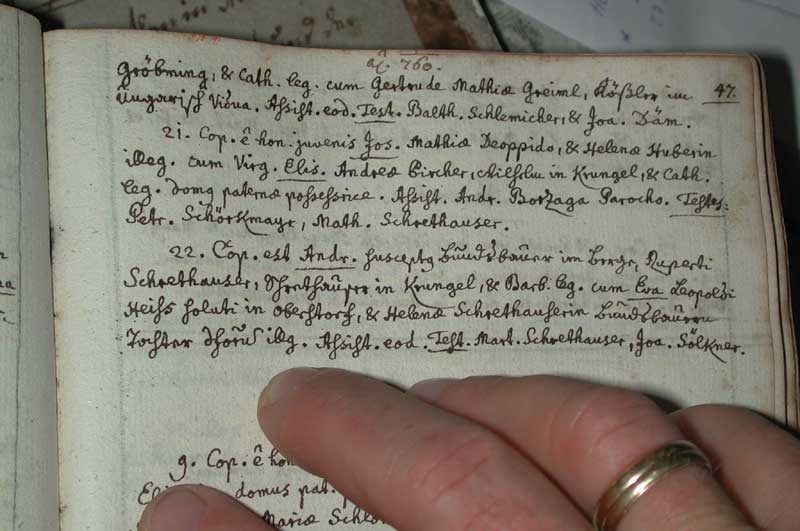 aō. 760.
47.
Gröbming, & Cath. leg. cum Gertrude Mathiæ Greiml, Kößler im
Ungarisch Assist. eod. Test. Balth. Schlemicher, & Joa. Däm.
21. Cop. ê hon. juvenis Jos. Mathiæ Deoppido, & Helenæ Huberin
illeg. cum Virg. Elis. Andreæ Pircher, in Krungel, & Cath.
leg. domq paternæ possessrice. Assist. Andr. Borzaga Parocho. Testes.
Petr. Schörkmayr, Math. Schrethauser.
22. Cop. est Andr. susceptq im Berge, Ruperti
Schrethauser, in Krungel, & Barb. leg. cum Eva Leopoldi
Heiss soluti in Oberstorf, & Helenæ Schrethauserin
Tochter illeg. Assist. eod. Test. Mart. Schrethauser, Joa. Sölkner.
9. Cop. ê hon
domus pat.
Mariæ